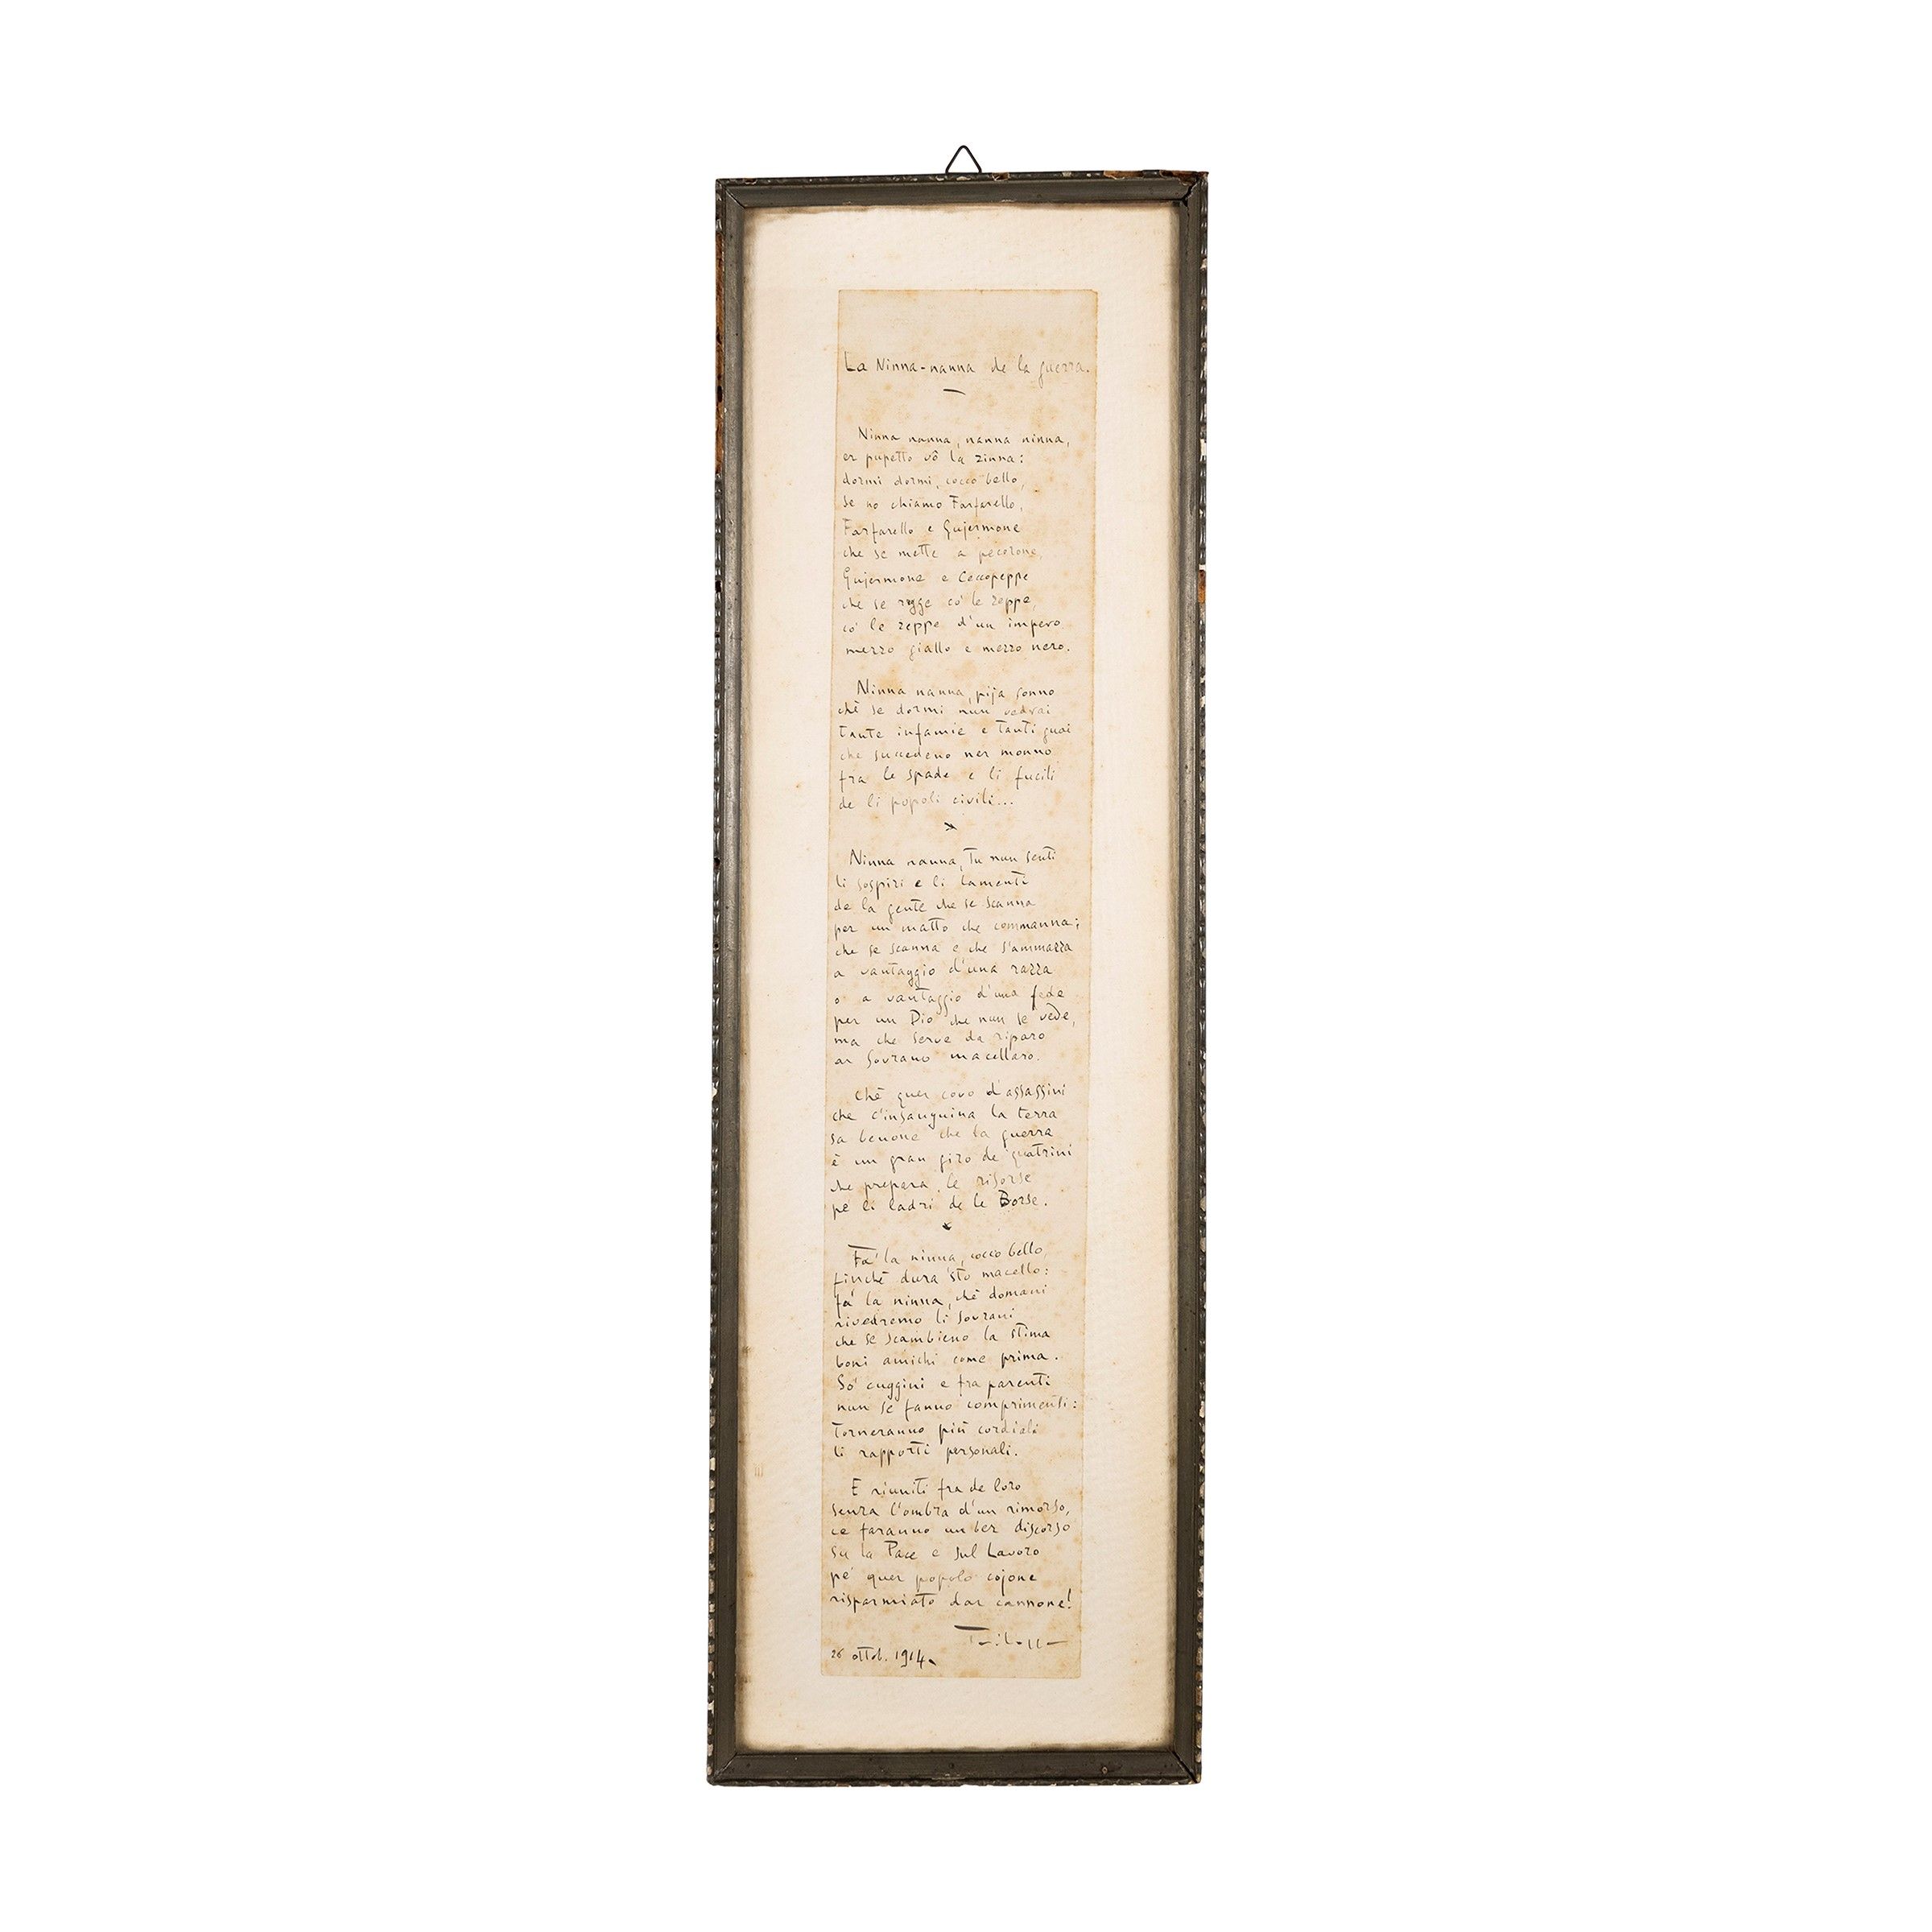 La Ninna-nanna de la guerra.
Ninna nanna, nanna ninna,
er pupetto vô la zinna:
dormi dormi, cocco bello,
se no chiamo Farfarello,
Farfarello e Gujermone
che se mette a pecorone,
Gujermone e Ceccopeppe
che se regge co' le zeppe,
co' le zeppe d'un impero
mezzo giallo e mezzo nero.
Ninna nanna, pija sonno
chè se dormi nun vedrai
tante infamie e tanti guai
che succedeno ner monno
fra le spade e li fucili
de li popoli civili...
Ninna nanna, tu nun senti
li sospiri e li lamenti
de la gente che se scanna
per un matto che commanna;
che se scanna e che s'ammazza
a vantaggio d'una razza
o a vantaggio d'una fede
per un Dio che nun se vede,
ma che serve da riparo
ar Sovrano macellaro.
Chè quer covo d'assassini
che c'insanguina la terra
sa benone che la guerra
è un gran giro de quatrini
che prepara le risorse
pe' li ladri de le Borse.
Fa' la ninna, cocco bello,
finchè dura 'sto macello:
fa' la ninna, chè domani
rivedremo li sovrani
che se scambieno la stima
boni amichi come prima.
So' cuggini e fra parenti
nun se fanno comprimenti:
torneranno più cordiali
li rapporti personali.
E riuniti fra de loro
senza l'ombra d'un rimorso,
ce faranno un ber discorso
su la Pace e sul Lavoro
pe' quer popolo cojone
risparmiato dar cannone!
Trilussa
26 ottob. 1914.